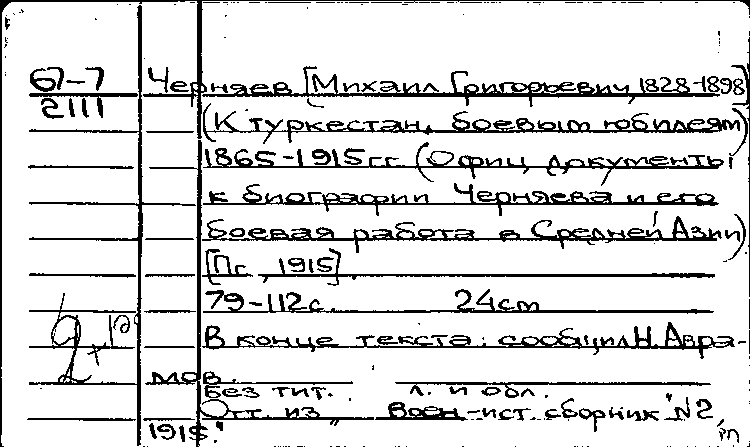 67-7
2111
Черняев [Михаил Григорьевич, 1828-1898]
(К туркестан. боевым юбилеям)
1865-1915 гг. (Офиц. документы
к биографии Черняева и его
боевая работа в Средней Азии)
[Пг., 1915].
79-112 с. 24 cm
В конце текста: сообщил Н. Авра-
мов.
Без тит. л. и обл.
Отт. из "Воен-ист. сборник" N2,
1915."
рп